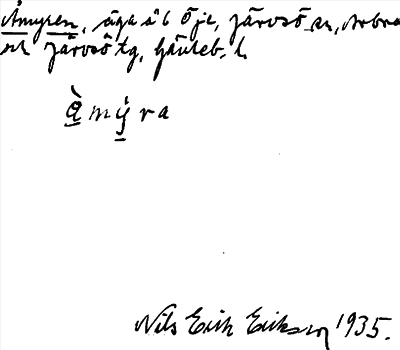 Åmyren, äga åt Öje, Järvsö sn, Arbrå
och Järvsö tg, Gävleb. l.
å̀ mý̱ ra
Nils Erik Eriksson 1935.